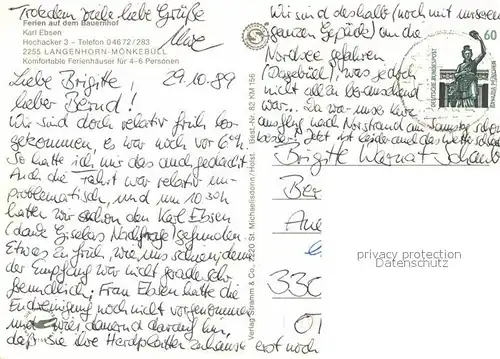 Trotzdem viele liebe Grüße
Uwe
Ferien auf dem Bauernhof
Karl Ebsen
Hochacker 3 – Telefon 04672/283
2255 LANGENHORN-MÖNKEBÜLL
Komfortable Ferienhäuser für 4-6 Personen
29.10.89
Liebe Brigitte,
lieber Bernd!
Wir sind doch relativ früh los-
gekommen, es war noch vor 6ʰʰ
So hatte ich mir das auch gedacht
Auch die Fahrt war relativ un-
problematisch, und um 10 30h
hatten wir schon den Karl Ebsen
(dank Giselas Nachfrage) gefunden.
Etwas zu früh, wie uns schien, denn
der Empfang war nicht gerade sehr
freundlich. Frau Ebsen hatte die
Endreinigung noch nicht vorgenommen
und wies dauernd darauf hin,
daß sie ihre Herdplatten zuhause erst noch
Verlag Stramm & Co., 2220 St. Michaelisdonn/Holst. Best.-Nr. 82 KM 156
Wir sind deshalb (noch mit unserem
ganzen Gepäck) an die
Nordsee gefahren
(Dagebüll), was jedoch
nicht allen berauschend
war. Da war unser
Ausflug nach Nordstrand am Samstag schon
besser. Jetzt ist leider auch das Wetter
60
DEUTSCHE BUNDESPOST
BAVARIA MÜNCHEN
Brigitte
Ber
330
privacy protection
Datenschutz